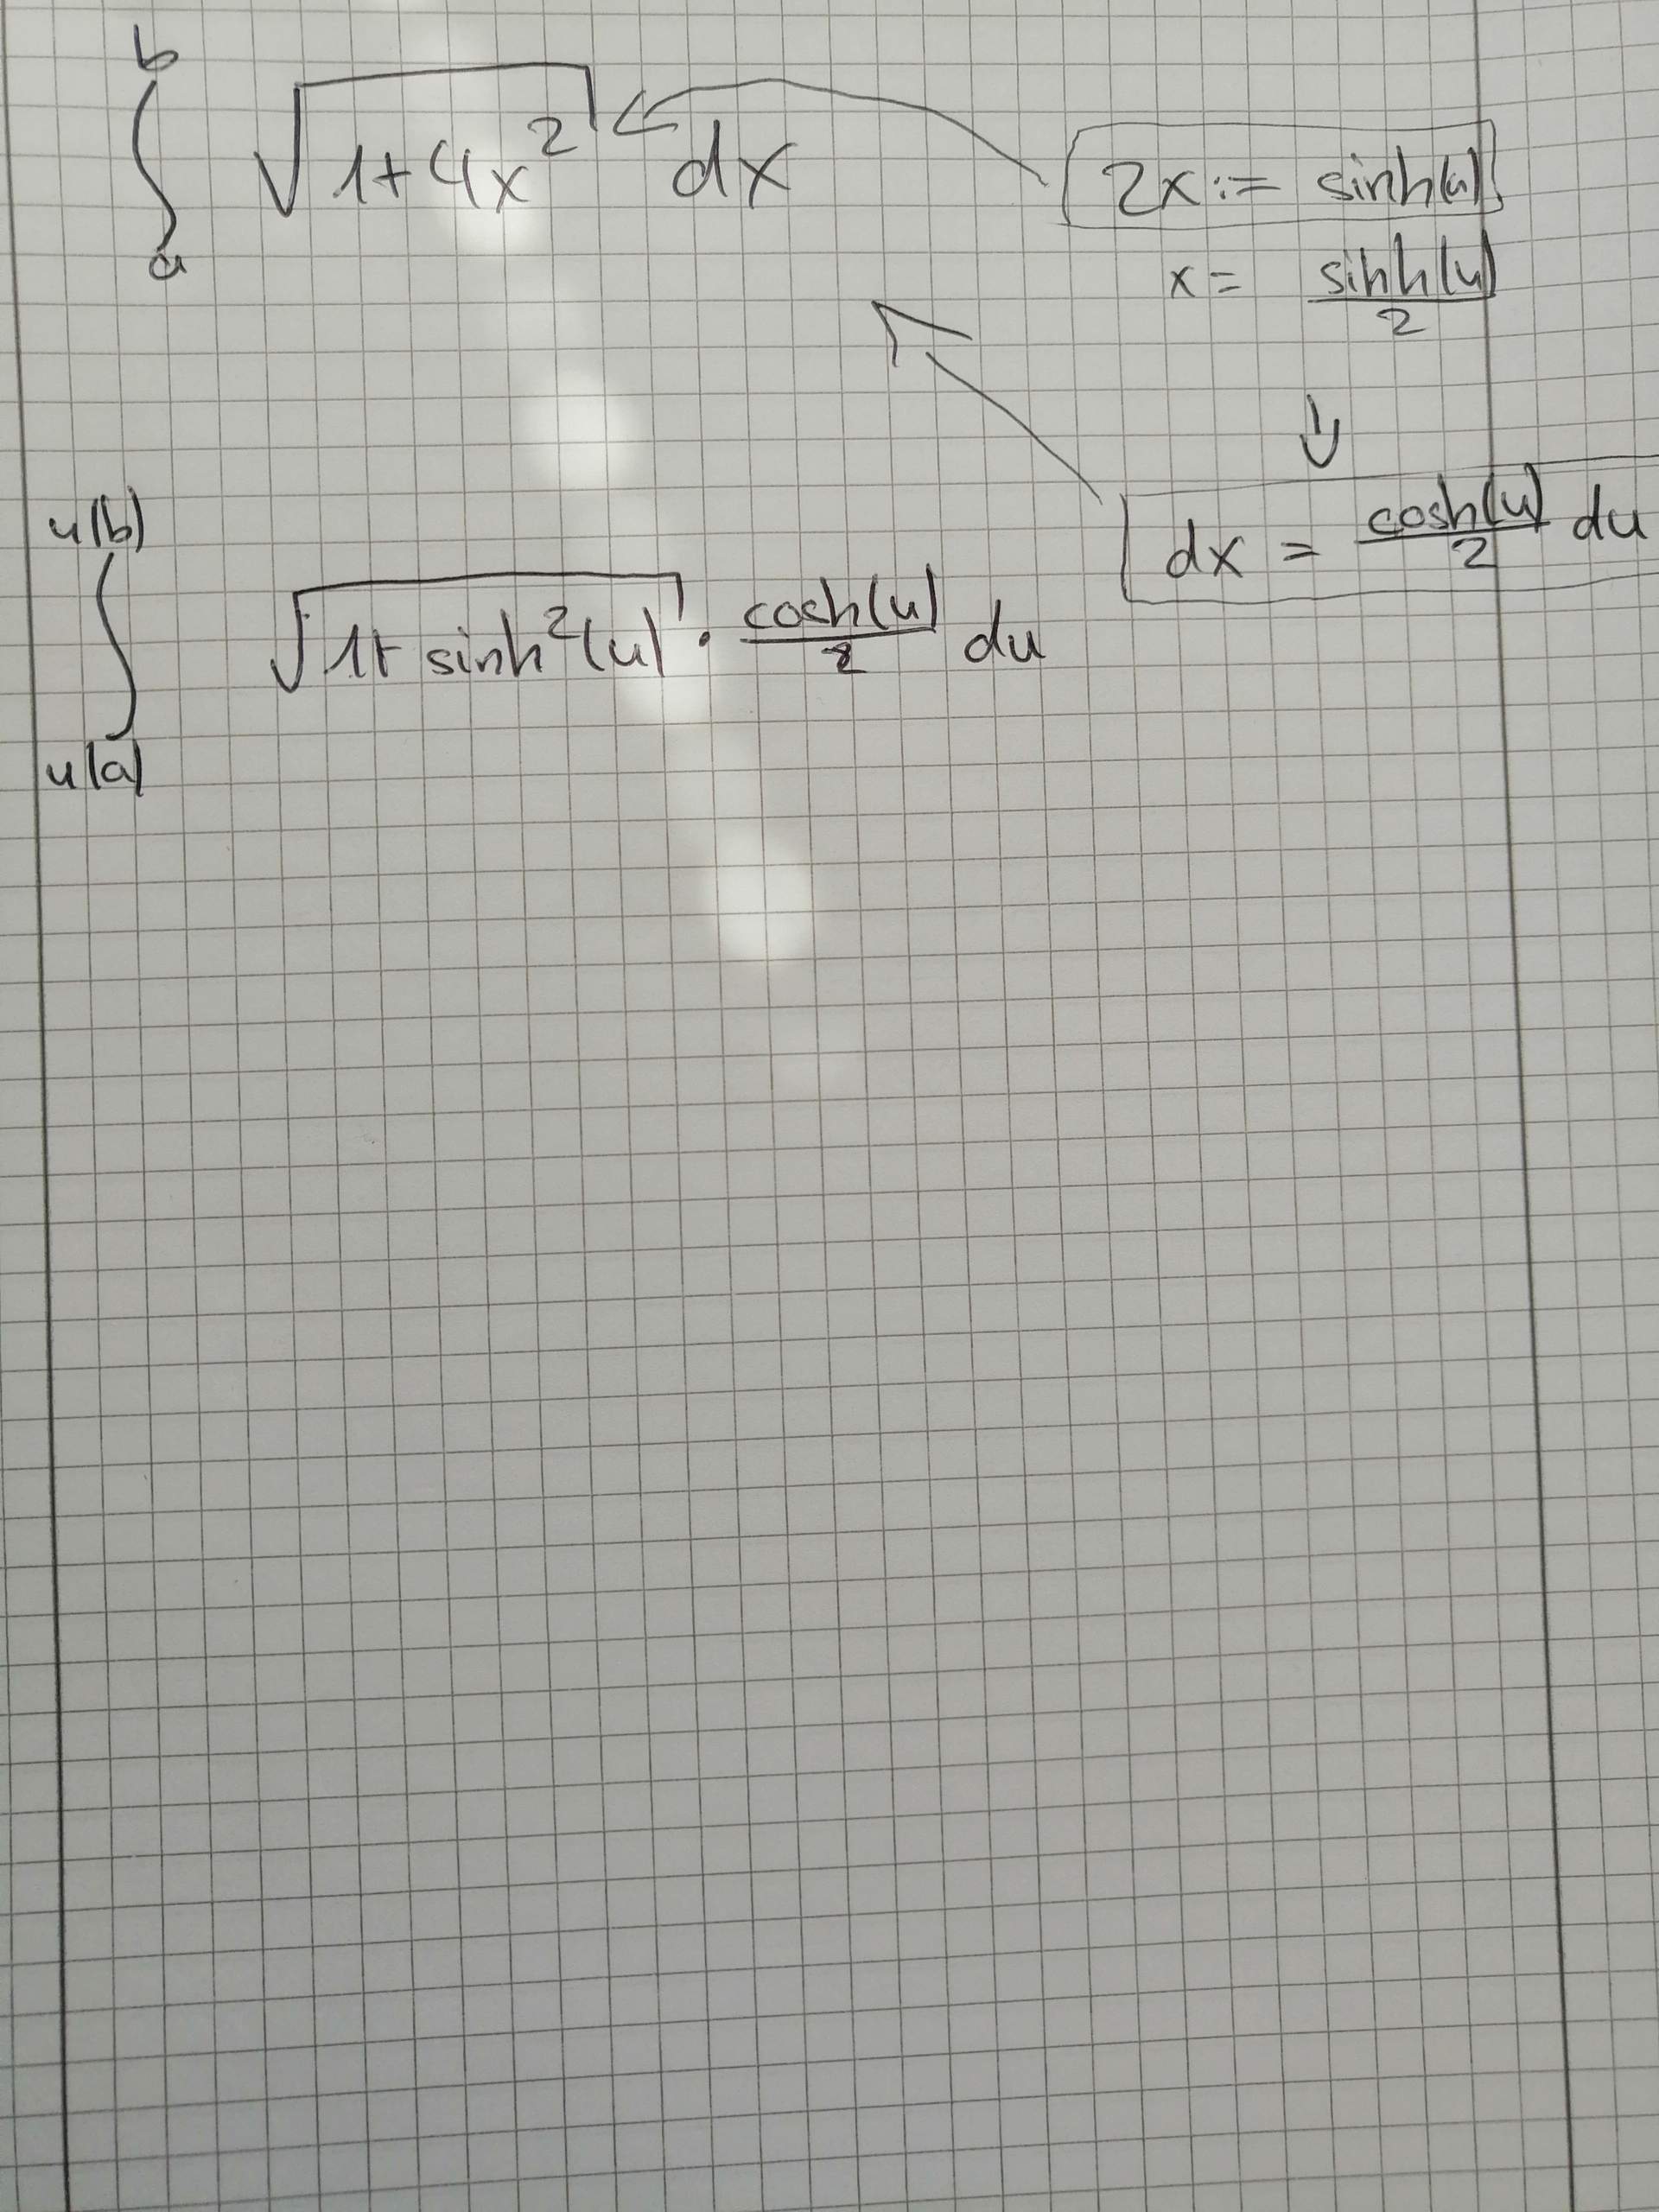 ∫ₐᵇ √(1+4x²) dx
2x := sinh(u)
x = sinh(u)/2
↓
dx = cosh(u)/2 du
∫_{u(a)}^{u(b)} √(1+sinh²(u)) · cosh(u)/2 du